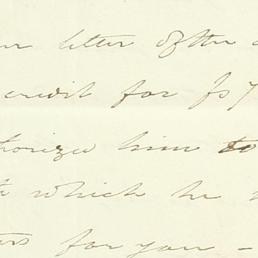 ur letter of the
credit for Js 7
thorized him to
which he
ers for you —